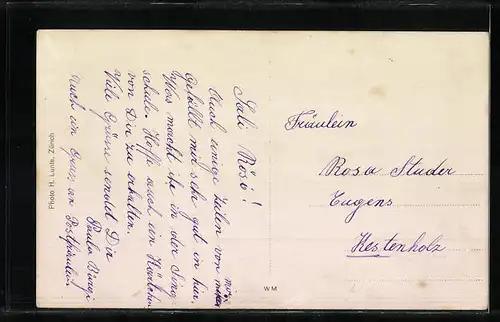 Sali Rösi!
Auch einige Zeilen von mir.
Gefällt mir sehr gut in hier,
Was macht ihr in der Sing-
schule. Hoffe auch ein Kärtchen
von Dir zu erhalten.
Viele Grüsse sendet Dir
Paula
Noch ein Gruss an
Photo H. Lunte, Zürich
W M
Fräulein
Rosa Studer
Eugens
Kestenholz